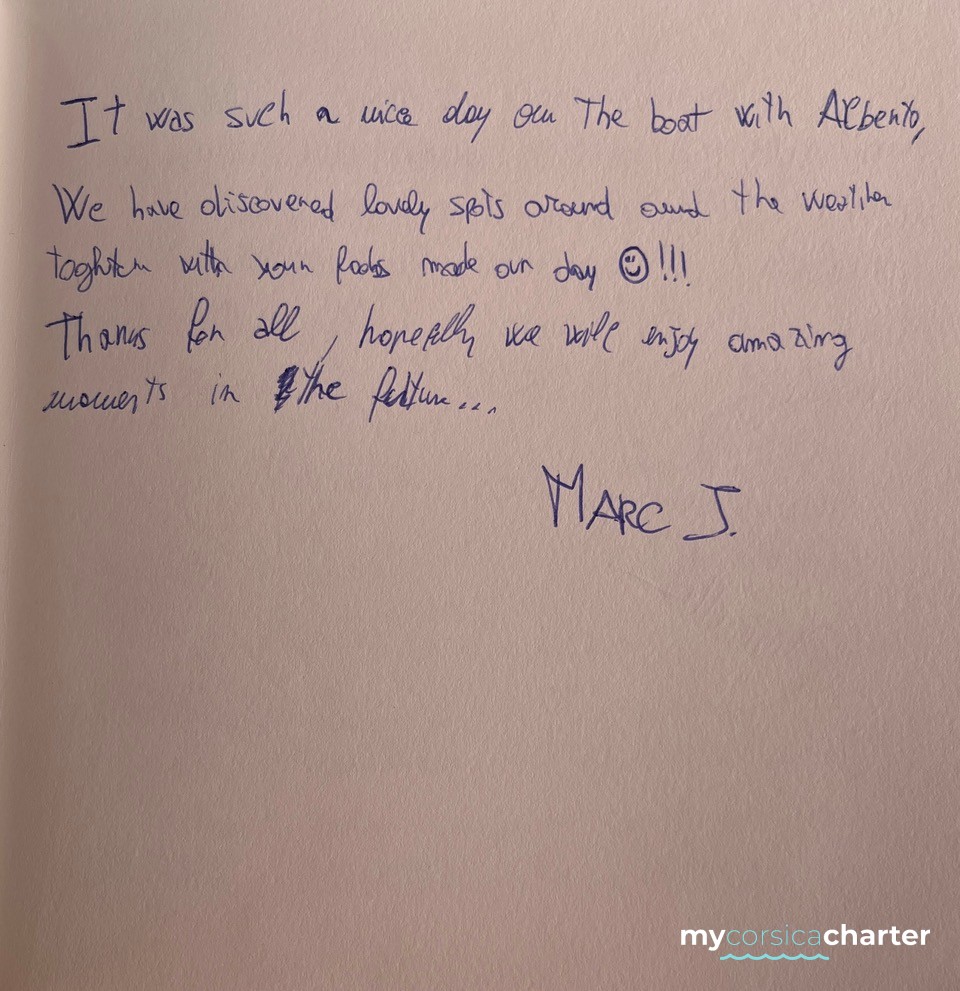 It was such a nice day on The boat with Alberto,
We have discovered lovely spots around and the weather
toghter with your foods made our day ☺!!!
Thanks for all, hopefully we will enjoy amazing
moments in the future...
MARC J.
mycorsicacharter